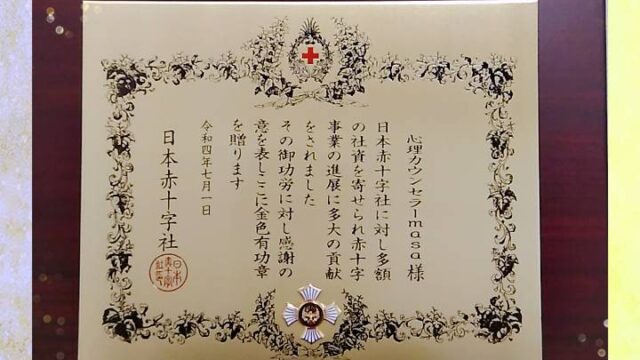 心理カウンセラーmasa 様
日本赤十字社に対し多額
の社資を寄せられ赤十字
事業の進展に多大の貢献
をされました
その御功労に対し感謝の
意を表しここに金色有功章
を贈ります
令和四年七月一日
日本赤十字社
日本
赤十字
社之印